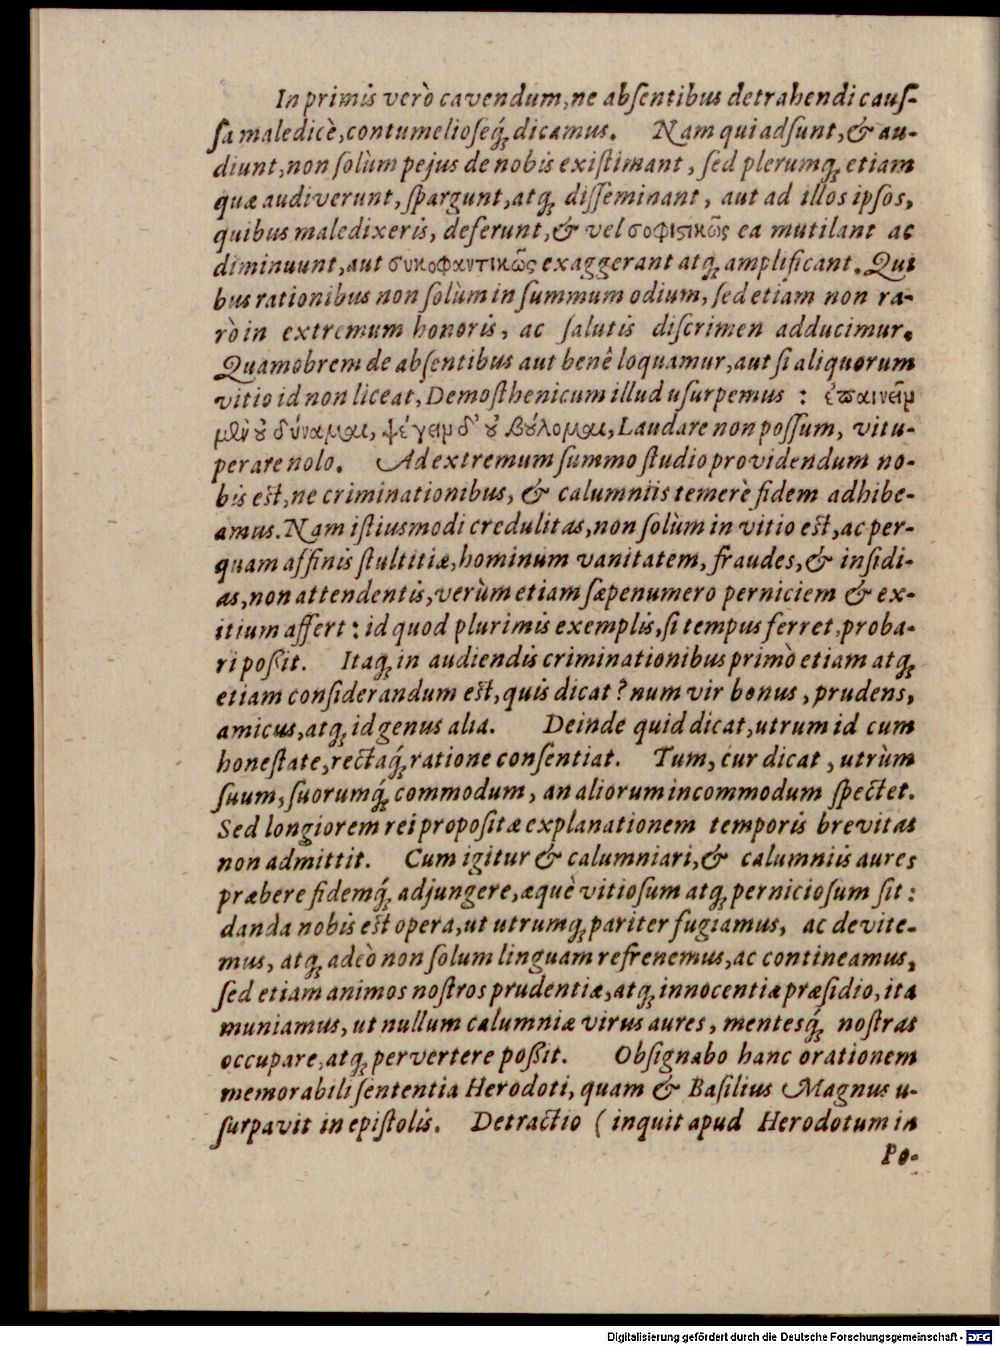 In primis verò cavendum, ne absentibus detrahendi cauſ-
ſa maledicè, contumelioſeq́; dicamus. Nam qui adſunt, & au-
diunt, non ſolùm pejus de nobis exiſtimant, ſed plerumq; etiam
quæ audiverunt, ſpargunt, atq; diſſeminant, aut ad illos ipſos,
quibus maledixeris, deferunt, & vel σοφιϛικῶς ea mutilant ac
diminuunt, aut συκοφαντικῶς exaggerant atq; amplificant. Qui
bus rationibus non ſolùm in ſummum odium, ſed etiam non ra-
rò in extremum honoris, ac ſalutis diſcrimen adducimur.
Quamobrem de abſentibus aut benè loquamur, aut ſi aliquorum
vitio id non liceat, Demoſthenicum illud uſurpemus: ἐπαινεῖν
μὲν ȣ δύναμαι, ψέγειν δ' ȣ βȣλομαι, Laudare non poſſum, vitu-
perare nolo. Ad extremum ſummo ſtudio providendum no-
bis eſt, ne criminationibus, & calumniis temerè fidem adhibe-
amus. Nam iſtiusmodi credulitas, non ſolùm in vitio eſt, ac per-
quam affinis ſtultitiæ, hominum vanitatem, fraudes, & inſidi-
as, non attendentis, verùm etiam ſæpenumero perniciem & ex-
itium affert: id quod plurimis exemplis, ſi tempus ferret, proba-
ri poßit. Itaq; in audiendis criminationibus primò etiam atq;
etiam conſiderandum eſt, quis dicat? num vir bonus, prudens,
amicus, atq; id genus alia. Deinde quid dicat, utrum id cum
honeſtate, rectaq́; ratione conſentiat. Tum, cur dicat, utrùm
ſuum, ſuorumq́; commodum, an aliorum incommodum ſpectet.
Sed longiorem rei propoſitæ explanationem temporis brevitas
non admittit. Cum igitur & calumniari, & calumniis aures
præbere fidemq́; adjungere, æquè vitioſum atq; pernicioſum ſit:
danda nobis eſt opera, ut utrumq; pariter fugiamus, ac devite-
mus, atq; adeò non ſolum linguam refrenemus, ac contineamus,
ſed etiam animos noſtros prudentiæ, atq; innocentiæ præſidio, ita
muniamus, ut nullum calumniæ virus aures, mentesq́; noſtras
occupare, atq; pervertere poßit. Obſignabo hanc orationem
memorabili ſententia Herodoti, quam & Baſilius Magnus u-
ſurpavit in epiſtolis. Detractio ( inquit apud Herodotum in
Po-
Digitalisierung gefördert durch die Deutsche Forschungsgemeinschaft - DFG